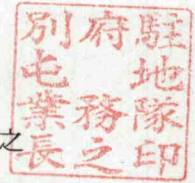 駐地隊印
府務之
別屯業長
之